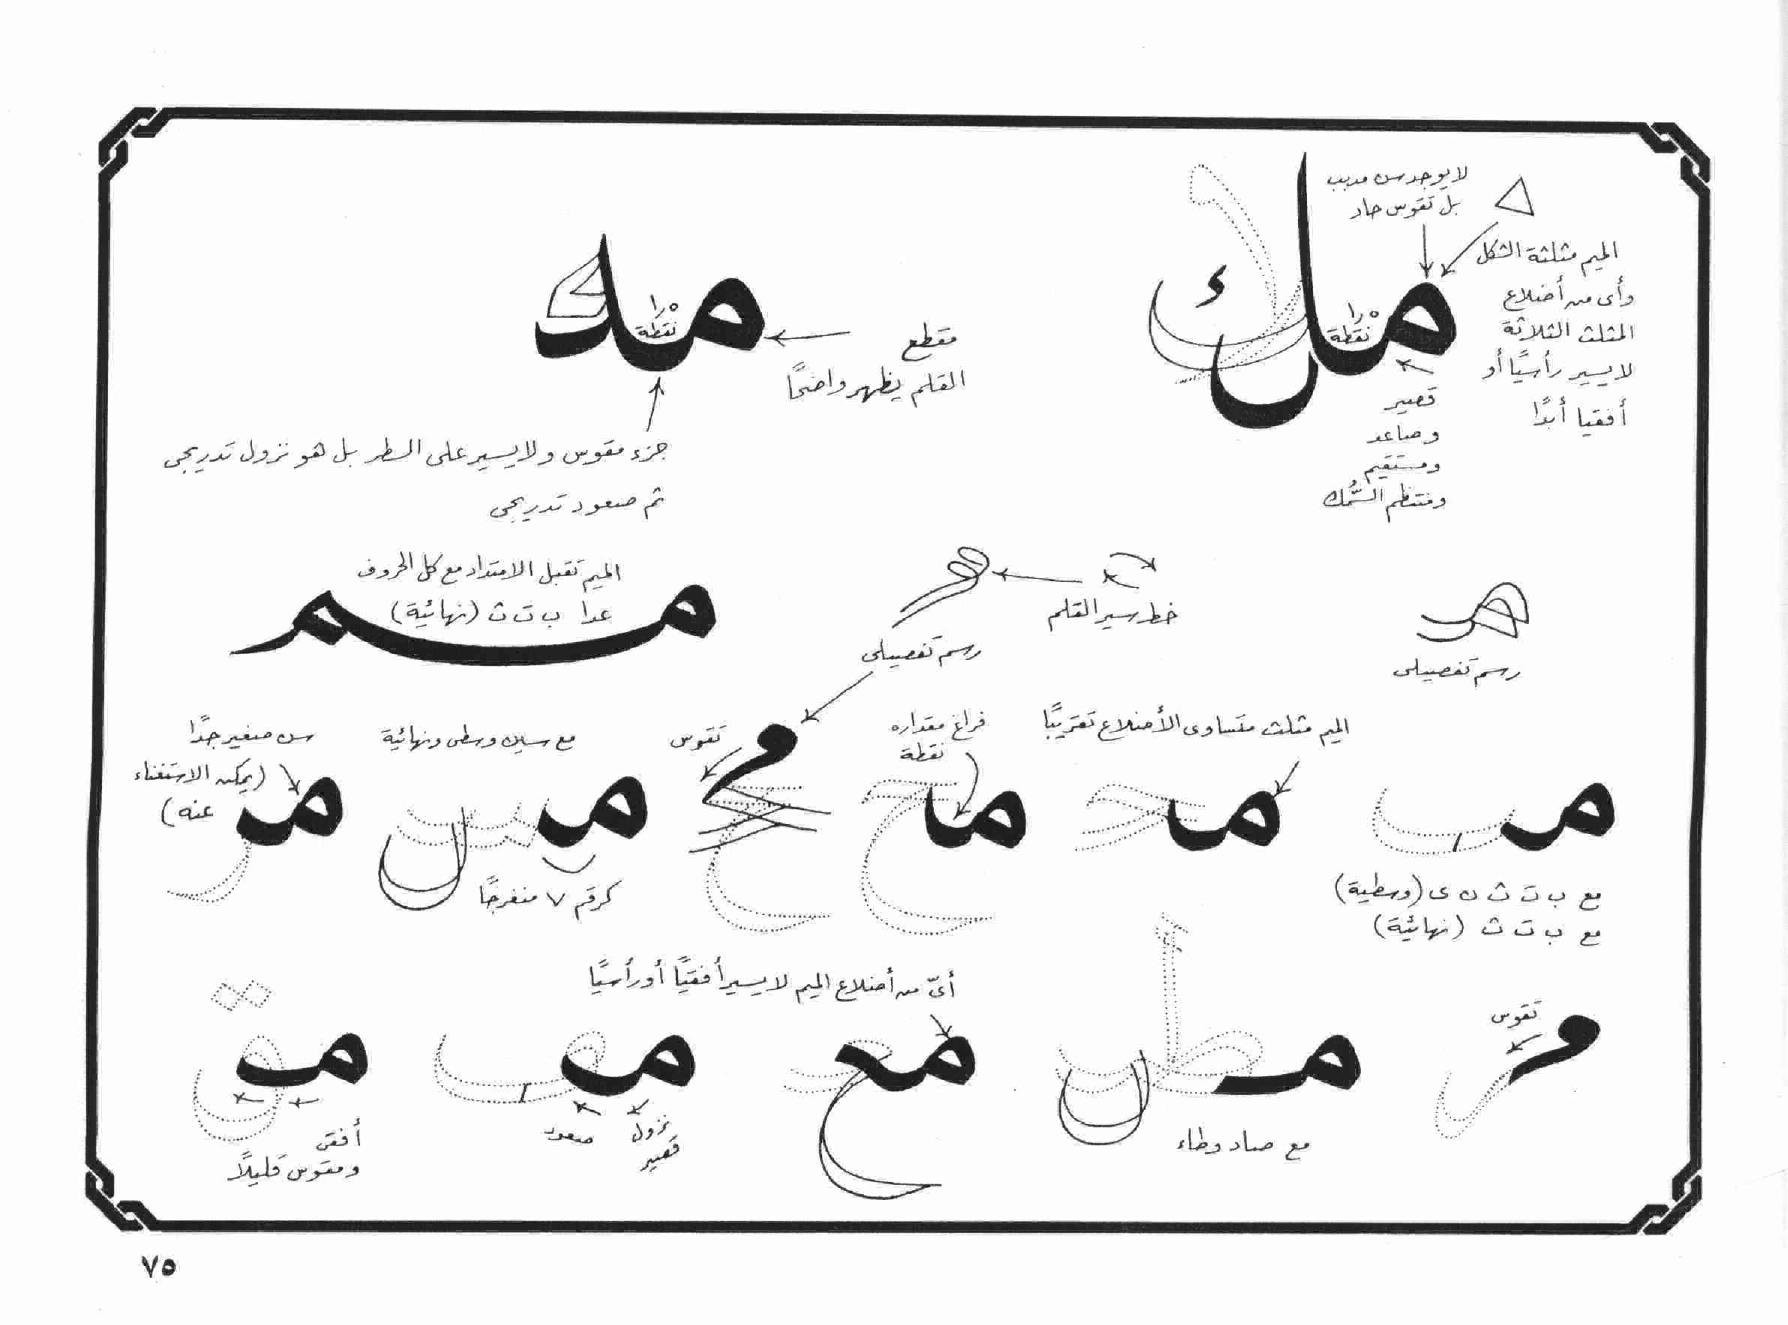 لا يوجد سن مدبب
بل تقوس حاد
الميم مثلثة الشكل
وأى من أضلاع
المثلث الثلاثة
لا يسير رأسيًا أو
أفقيا أبدًا
ملك
١٫٥
نقطة
قصير
وصاعد
ومستقيم
ومنتظم السُّمك
مد
١٫٥
نقطة
مقطع
القلم يظهر واضحًا
جزء مقوس ولا يسير على السطر بل هو نزول تدريجى
ثم صعود تدريجى
رسم تفصيلى
خط سير القلم
رسم تفصيلى
الميم تقبل الامتداد مع كل الحروف
عدا ب ت ث (نهائية)
مم
الميم مثلث متساوى الأضلاع تقريبًا
فراغ مقداره
نقطة
تقوس
مع سين وسطى ونهائية
سن صغير جدًا
(يمكن الاستغناء
عنه)
كرقم ٧ منفرجًا
مع ب ت ث ن ى (وسطية)
مع ب ت ث (نهائية)
أىّ من أضلاع الميم لا يسير أفقيًا أو رأسيًا
تقوس
مع صاد وطاء
نزول
قصير
صعود
أفقى
ومقوس قليلاً
٧٥